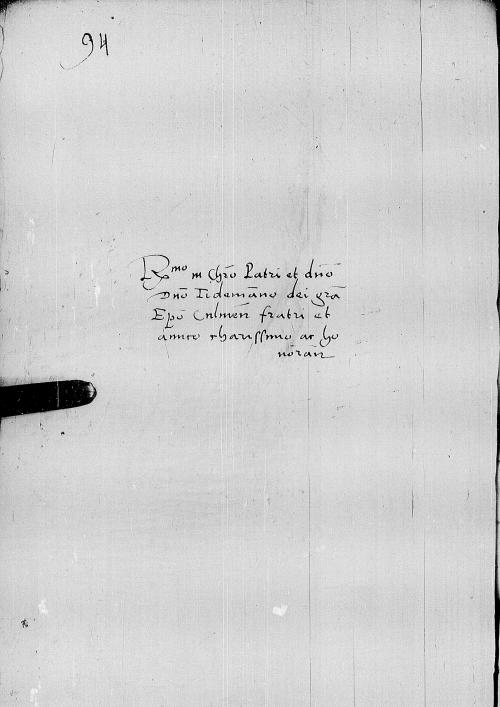 94
R^mo in Chro Patri et dno
Dno Tidemano dei gra
Epo Culmen fratri et
amico charissimo ac ho
noran